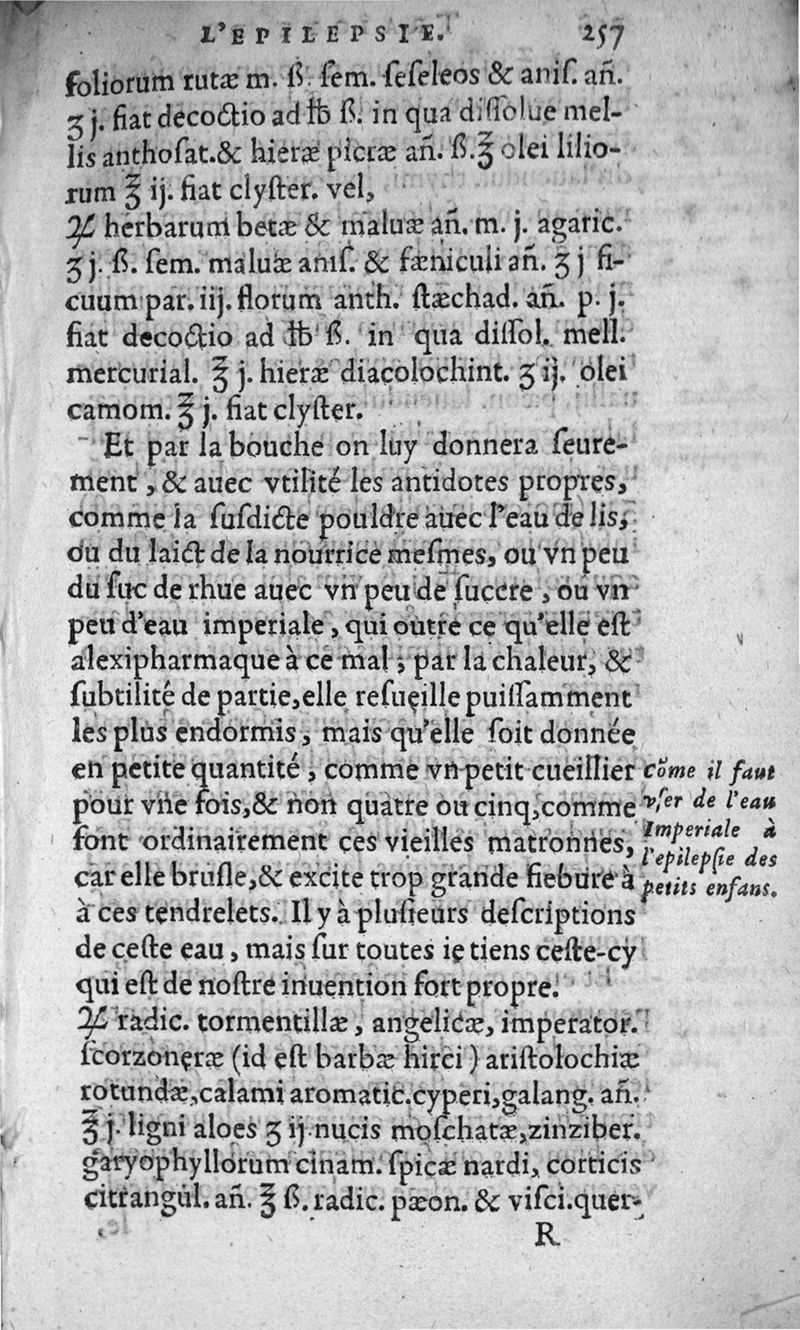 L'EPILEPSIE. 257
foliorum rutæ m. ß. ſem. ſeſeleos & aniſ. añ.
ʒ j. fiat decoctio ad ℔ ß. in qua diſſolue mel-
lis anthoſat. & hieræ picræ añ. ß. ℥ olei lilio-
rum ℥ ij. fiat clyſter. vel,
℞ herbarum betæ & maluæ añ. m. j. agaric.
ʒ j. ß. ſem. maluæ aniſ. & fæniculi añ. ʒ j fi-
cuum par. iij. florum anth. ſtæchad. añ. p. j.
fiat decoctio ad ℔ ß. in qua diſſol. mell.
mercurial. ℥ j. hieræ diacolochint. ʒ ij. olei
camom. ℥ j. fiat clyſter.
Et par la bouche on luy donnera ſeure-
ment, & auec vtilité les antidotes propres,
comme la ſuſdicte pouldre auec l'eau de lis,
ou du laict de la nourrice meſmes, ou vn peu
du ſuc de rhue auec vn peu de ſuccre, ou vn
peu d'eau imperiale, qui outre ce qu'elle eſt
alexipharmaque à ce mal, par la chaleur, &
ſubtilité de partie, elle reſueille puiſſamment
les plus endormis, mais qu'elle ſoit donnée
en petite quantité, comme vn petit cueillier
pour vne fois, & non quatre ou cinq, comme
font ordinairement ces vieilles matrones,
car elle bruſle, & excite trop grande fiebure à
à ces tendrelets. Il y à pluſieurs deſcriptions
de ceſte eau, mais ſur toutes ie tiens ceſte-cy
qui eſt de noſtre inuention fort propre.
cõme il faut
vſer de l'eau
Imperiale à
l'epilepſie des
petits enfans.
℞ radic. tormentillæ, angelicæ, imperator.
ſcorzoneræ (id eſt barbæ hirci) ariſtolochiæ
rotundæ, calami aromatic. cyperi, galang. añ.
℥ j. ligni aloes ʒ ij. nucis moſchatæ, zinziber.
garyophyllorum cinam. ſpicæ nardi, corticis
citrangul. añ. ℥ ß. radic. pæon. & viſci. quer-
R